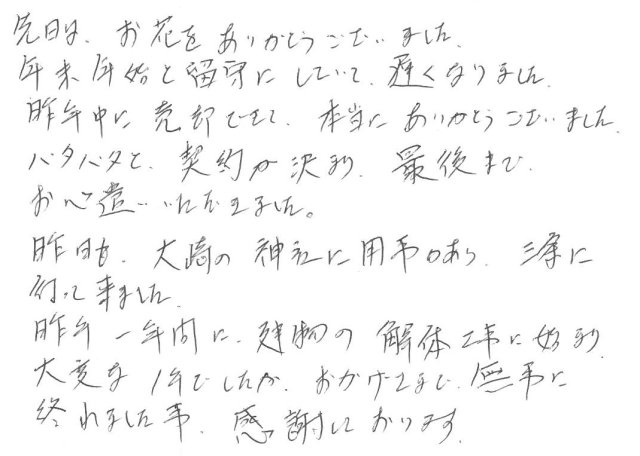 先日は、お花をありがとうございました。
年末年始と留守にしていて、遅くなりました。
昨年中に売却できて、本当にありがとうございました。
バタバタと、契約が決まり、最後まで、
お心遣いいただきました。
昨日も、大崎の神社に用事があり、三津に
行って来ました。
昨年一年間に、建物の解体工事に始まり、
大変な1年でしたが、おかげさまで、無事に
終れました事、感謝しております。